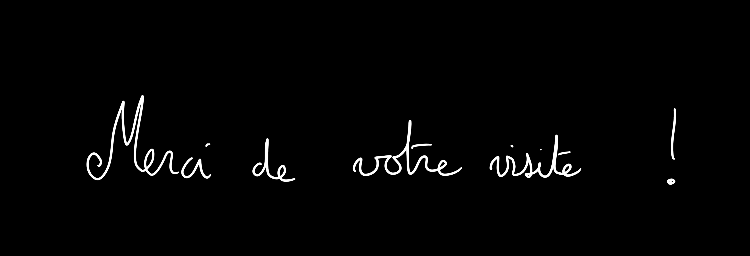 Merci de votre visite !